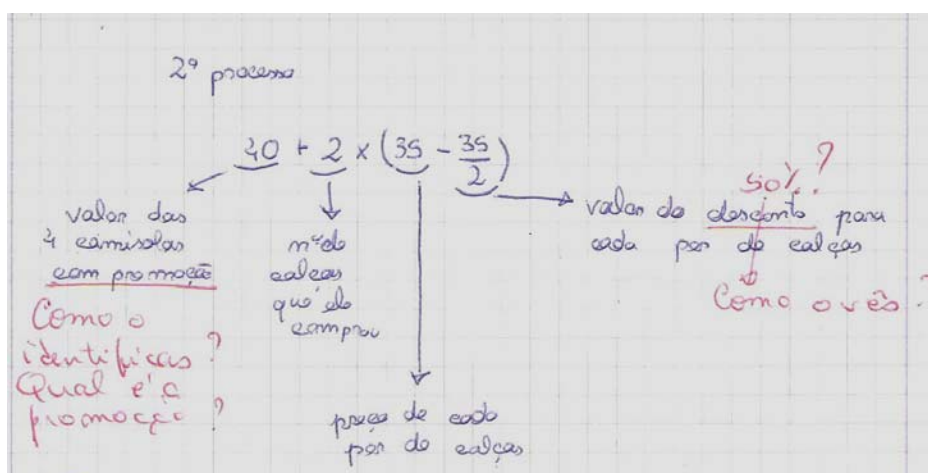 2º processo
40 + 2 x (35 - 35/2)
valor das
4 camisolas
com promoção
Como o
identificas?
Qual é a
promoção?
nº de
calças
que ela
comprou
preço de cada
par de calças
50%?
valor do desconto para
cada par de calças
Como o vês?